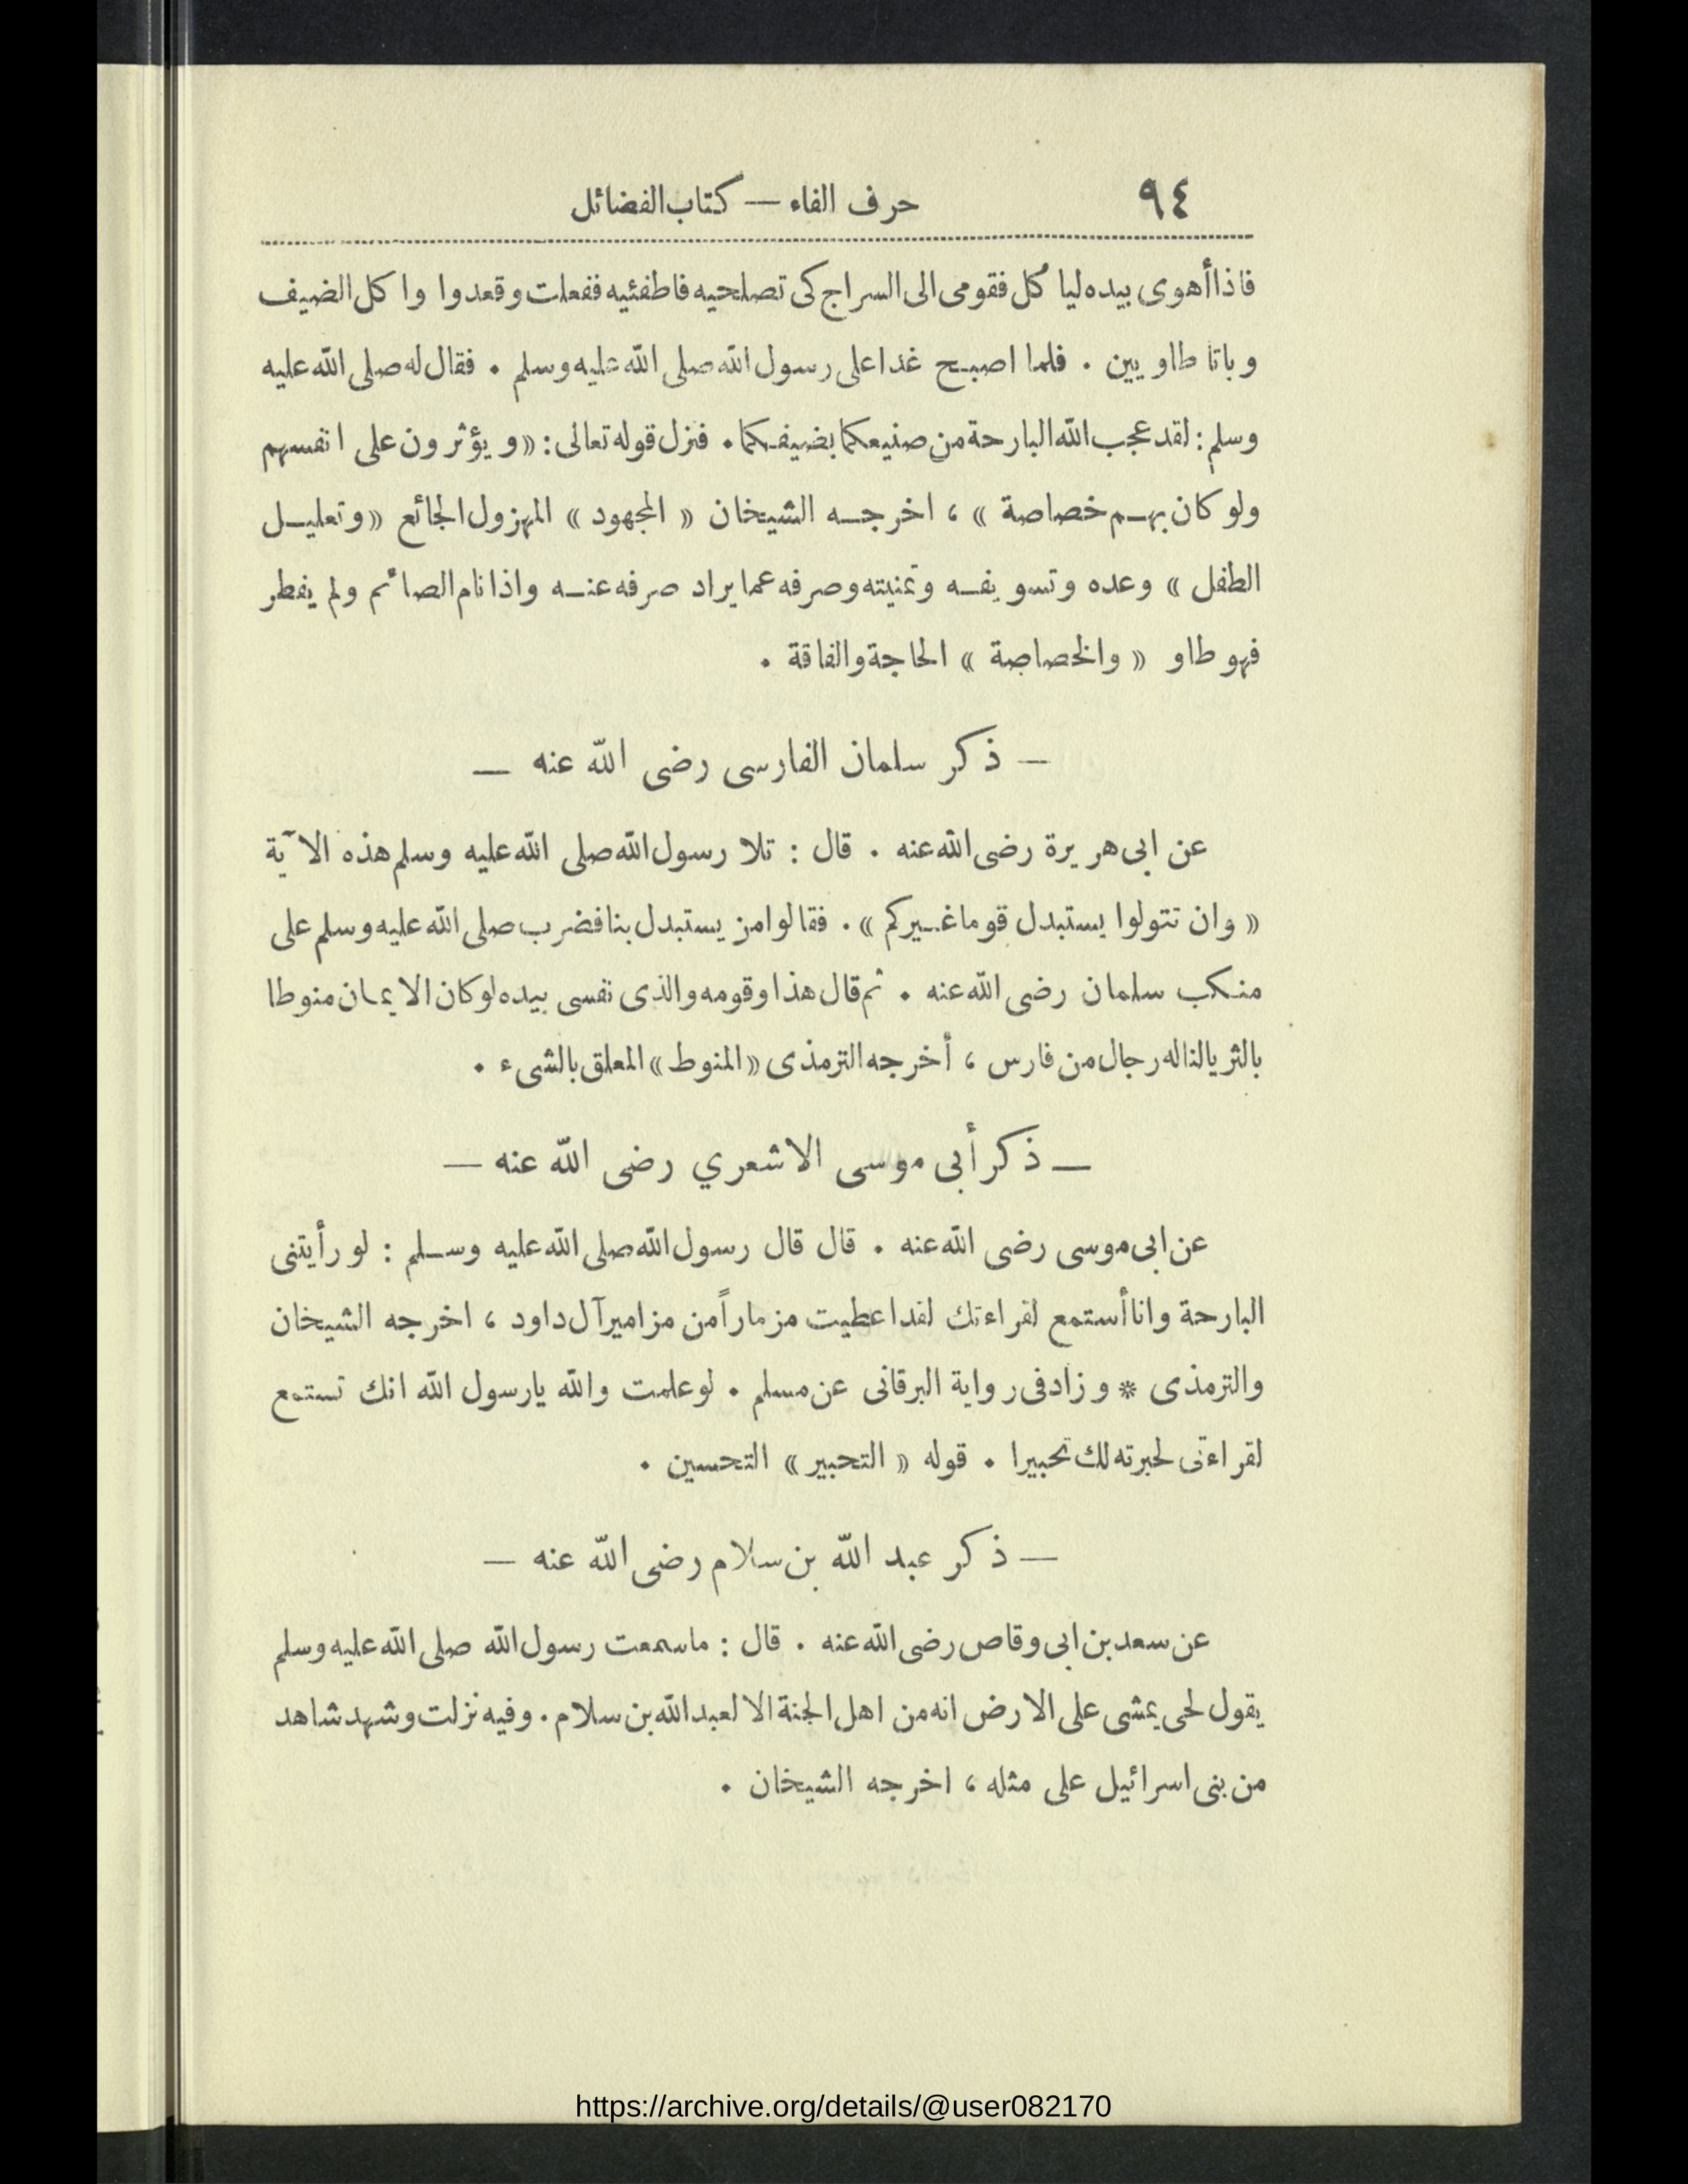 ٩٤
حرف الفاء — كتاب الفضائل
فاذا أهوى بيده ليأكل فقومى الى السراج كى تصلحيه فاطفئيه ففعلت وقعدوا واكل الضيف
وباتا طاويين . فلما اصبح غدا على رسول الله صلى الله عليه وسلم . فقال له صلى الله عليه
وسلم : لقد عجب الله البارحة من صنيعكما بضيفكما . فنزل قوله تعالى : « ويؤثرون على انفسهم
ولو كان بهم خصاصة » ، اخرجه الشيخان « المجهود » المهزول الجائع « وتعليل
الطفل » وعده وتسويفه وتمنيته وصرفه عما يراد صرفه عنه واذا نام الصائم ولم يفطر
فهو طاو « والخصاصة » الحاجة والفاقة .
— ذكر سلمان الفارسى رضى الله عنه —
عن ابى هريرة رضى الله عنه . قال : تلا رسول الله صلى الله عليه وسلم هذه الآية
« وان تتولوا يستبدل قوما غيركم » . فقالوا من يستبدل بنا فضرب صلى الله عليه وسلم على
منكب سلمان رضى الله عنه . ثم قال هذا وقومه والذى نفسى بيده لوكان الايمان منوطا
بالثريا لناله رجال من فارس ، أخرجه الترمذى « المنوط » المعلق بالشىء .
— ذكر أبى موسى الاشعري رضى الله عنه —
عن ابى موسى رضى الله عنه . قال قال رسول الله صلى الله عليه وسلم : لو رأيتنى
البارحة وانا أستمع لقراءتك لقد اعطيت مزماراً من مزامير آل داود ، اخرجه الشيخان
والترمذى * وزاد فى رواية البرقانى عن مسلم . لو علمت والله يارسول الله انك تستمع
لقراءتى لحبرته لك تحبيرا . قوله « التحبير » التحسين .
— ذكر عبد الله بن سلام رضى الله عنه —
عن سعد بن ابى وقاص رضى الله عنه . قال : ماسمعت رسول الله صلى الله عليه وسلم
يقول لحى يمشى على الارض انه من اهل الجنة الا لعبد الله بن سلام . وفيه نزلت وشهد شاهد
من بنى اسرائيل على مثله ، اخرجه الشيخان .
https://archive.org/details/@user082170